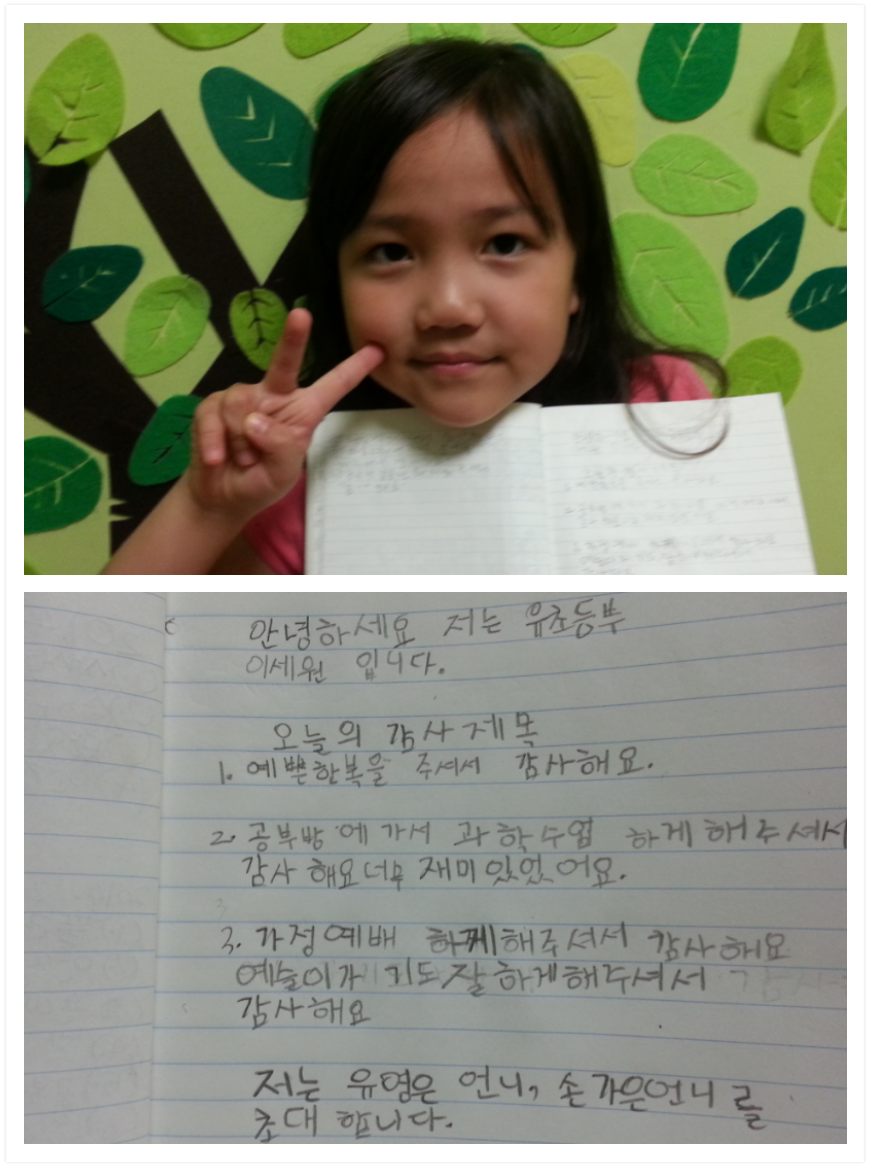 안녕하세요 저는 유초등부
이세원 입니다.
오늘의 감사제목
1. 예쁜한복을 주셔서 감사해요.
2. 공부방에가서 과학수업 하게해주셔서
감사해요너무 재미있었어요.
3. 가정예배 하게해주셔서 감사해요
예슬이가 기도잘하게해주셔서
감사해요
저는 유영은 언니, 손가은언니를
초대합니다.